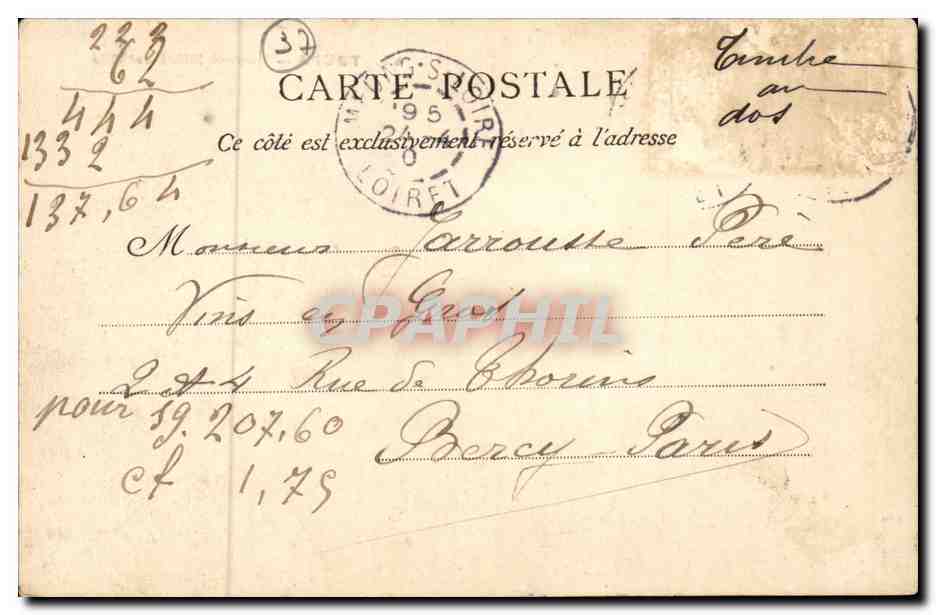 37
222
62
444
1332
137,64
CARTE POSTALE
Ce côté est exclusivement réservé à l'adresse
Timbre
au
dos
MEUNG-S-LOIRE
95
24
0
LOIRET
Monsieur Jarrousse Père
Vins en Gros
2 et 4 Rue de Thorins
pour 59.207,60
Bercy Paris
cf 1,75
CPAPHIL